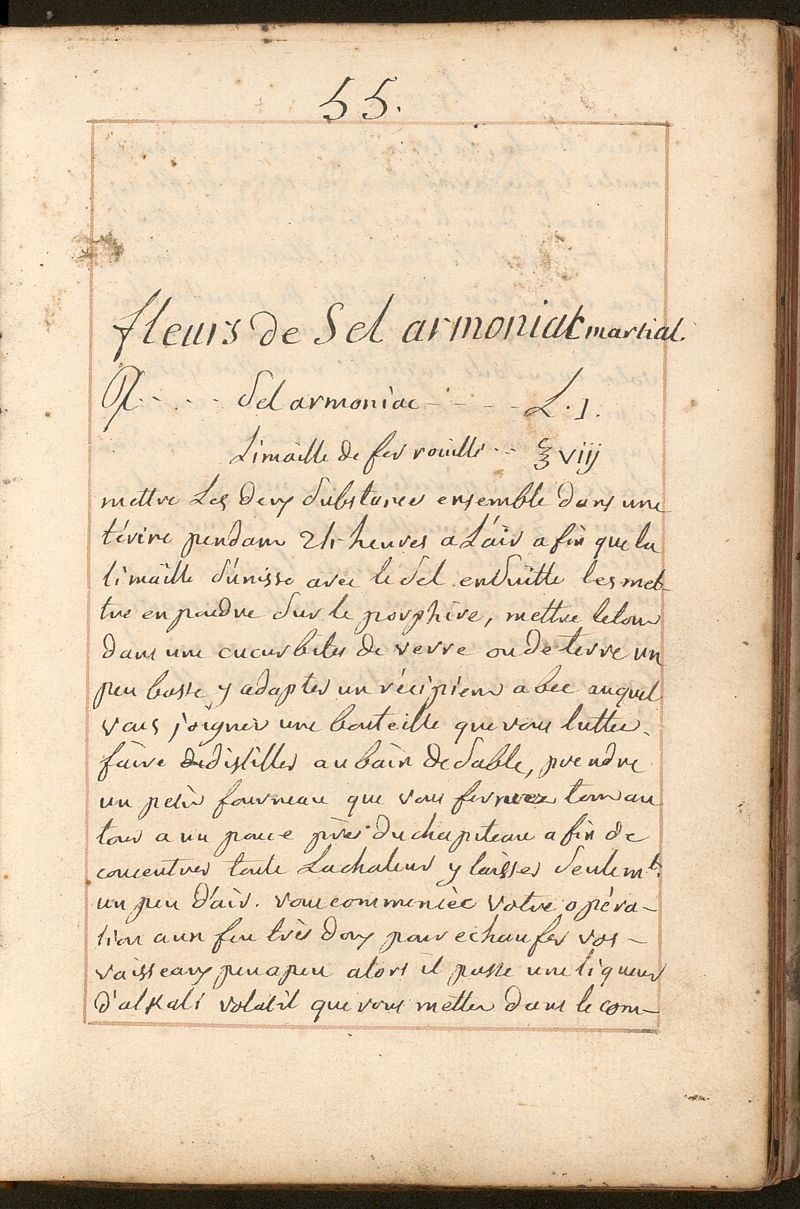 55.
fleurs de Sel armoniac martial.
℞ - - - - Sel armoniac - - - - - L. 1.
Limaille de fer rouillé - - ℥ viij
mettre Les deux Substances ensemble dans une
térine pendam 24 heures a L'air afin que la
limaille S'unisse avec le Sel. enSuitte les met-
tre en poudre Sur le porphire, mettre letout
dans une cucurbites de verre ou de terre un
peu basse y adapter un récipiem a bec auquel
vous joigner une bouteille que vous luttée.
faire didistiller au bain de Sable, prendre
un petit fourneau que vous fermerez tout au
tour a un pouce près du chapiteau afin de
concentrer toute Lachaleur y laisser Seulemt.
un peu d'air. vous commencéc votre opéra-
tion a un feu très doux pour echaufer vos -
vaisseaux peu a peu alors il passe une liqueur
d'alkali volatil que vous metter dans le com-